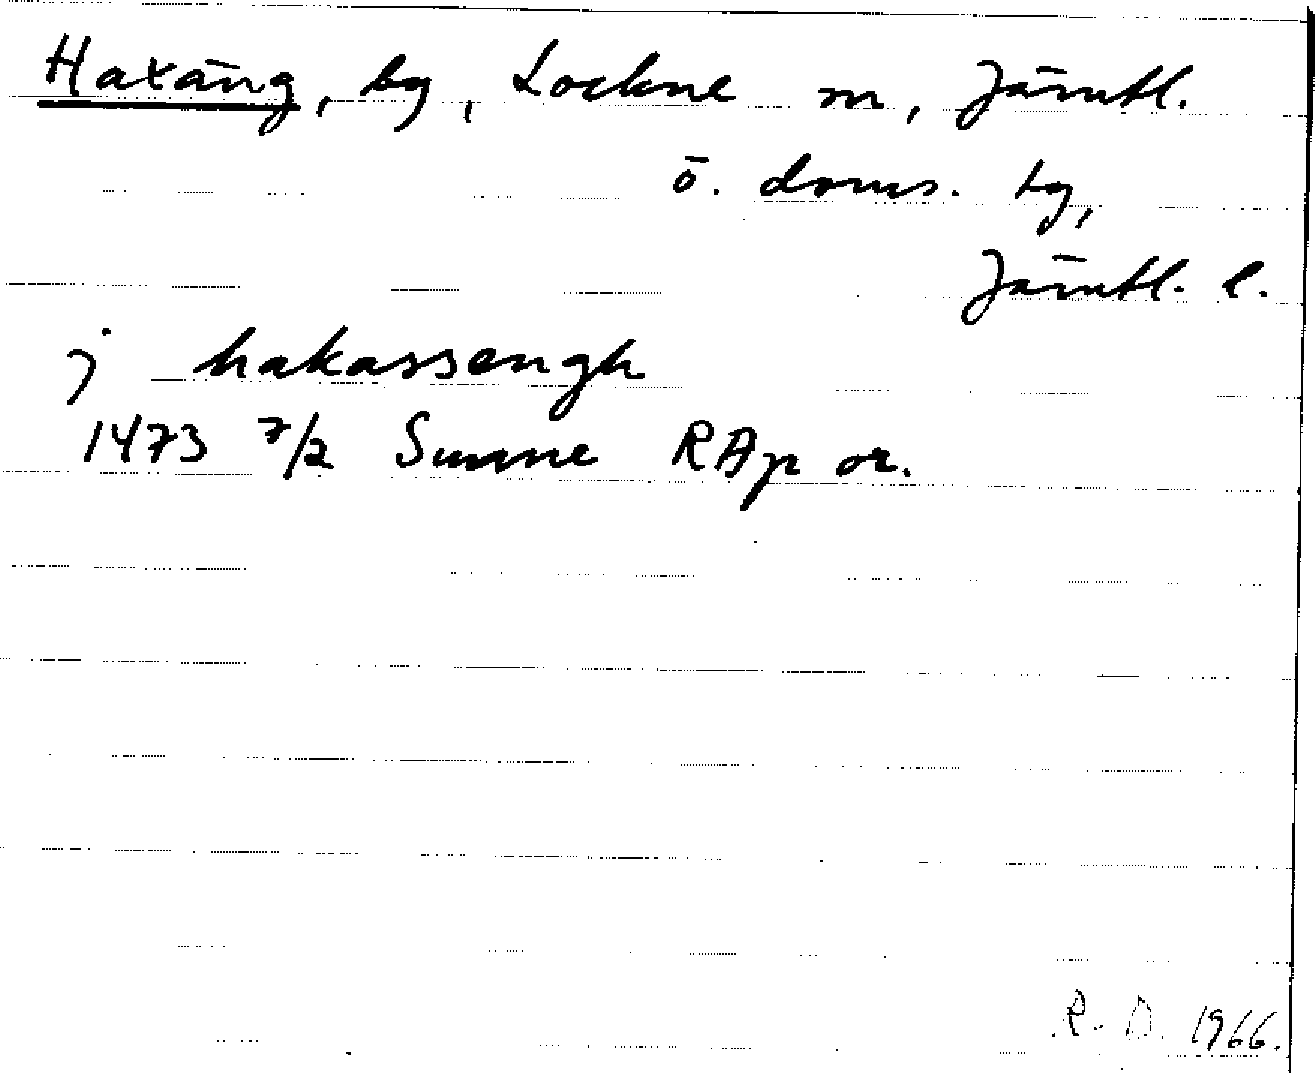 Haxäng, by, Lockne sn, Jämtl.
ö. doms. tg,
Jämtl. l.
j hakassengh
1473 7/2 Sunne RAp or.
R. D. 1966.